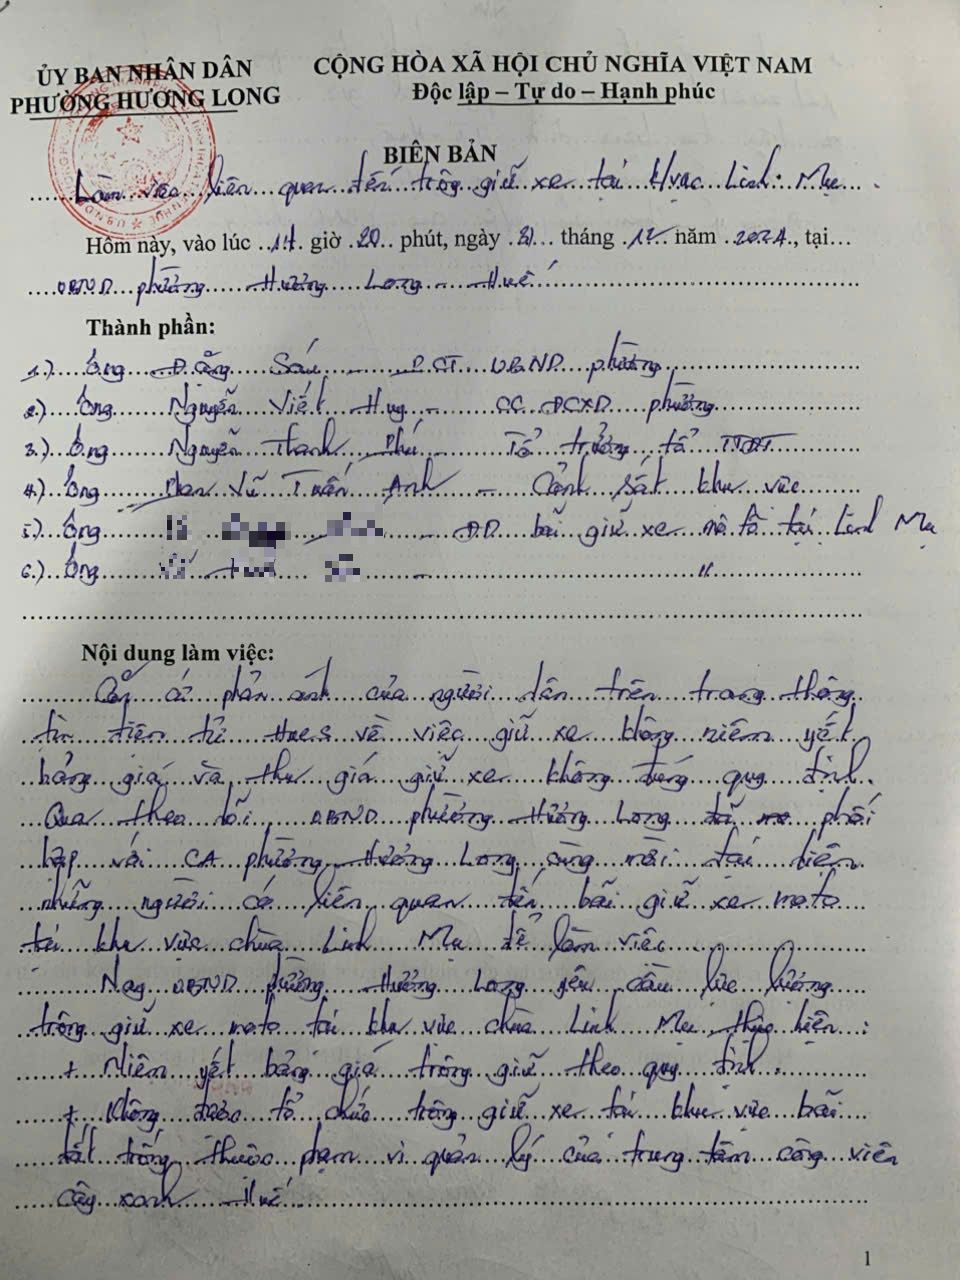 ỦY BAN NHÂN DÂN
PHƯỜNG HƯƠNG LONG
CỘNG HÒA XÃ HỘI CHỦ NGHĨA VIỆT NAM
Độc lập – Tự do – Hạnh phúc
BIÊN BẢN
Làm việc liên quan đến trông giữ xe tại khu vực Linh Mụ
Hôm này, vào lúc 14 giờ 20 phút, ngày 31 tháng 12 năm 2024, tại
UBND phường Hương Long - Huế
Thành phần:
1.) Ông Đặng Sáu - PCT UBND phường
2.) Ông Nguyễn Viết Huy - CC ĐCXD phường
3.) Ông Nguyễn Thanh Phú - Tổ trưởng tổ TTĐT
4.) Ông Phan Vũ Tuấn Anh - Cảnh sát khu vực
5.) Ông ĐD bãi giữ xe mô tô tại Linh Mụ
6.) Ông - "
Nội dung làm việc:
Căn cứ phản ánh của người dân trên trang thông
tin điện tử Hues về việc giữ xe không niêm yết
bảng giá và thu giá giữ xe không đúng quy định.
Qua theo dõi UBND phường Hương Long đã phối
hợp với CA phường Hương Long cùng mời đại diện
những người có liên quan đến bãi giữ xe moto
tại khu vực chùa Linh Mụ để làm việc
Nay UBND phường Hương Long yêu cầu lực lượng
trông giữ xe moto tại khu vực chùa Linh Mụ thực hiện:
+ Niêm yết bảng giá trông giữ theo quy định.
+ Không được tổ chức trông giữ xe tại khu vực bãi
đất trống thuộc phạm vi quản lý của trung tâm công viên
cây xanh Huế
1